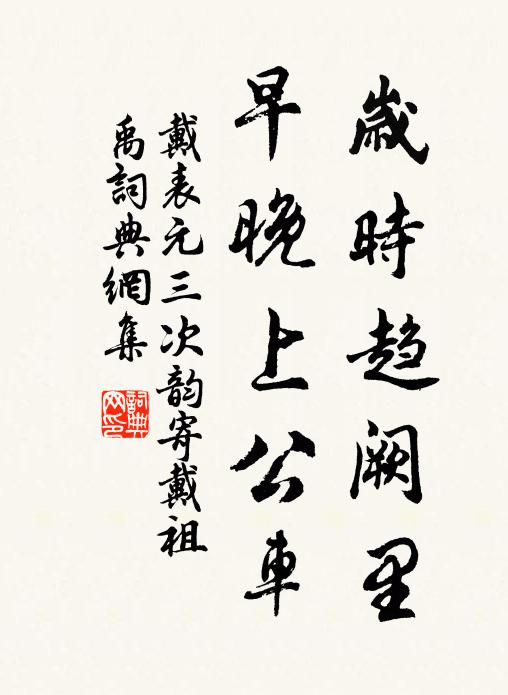 歲時趨闕里
早晚上公車
戴表元三次韵寄戴祖
禹詞典網集
詞典
网印